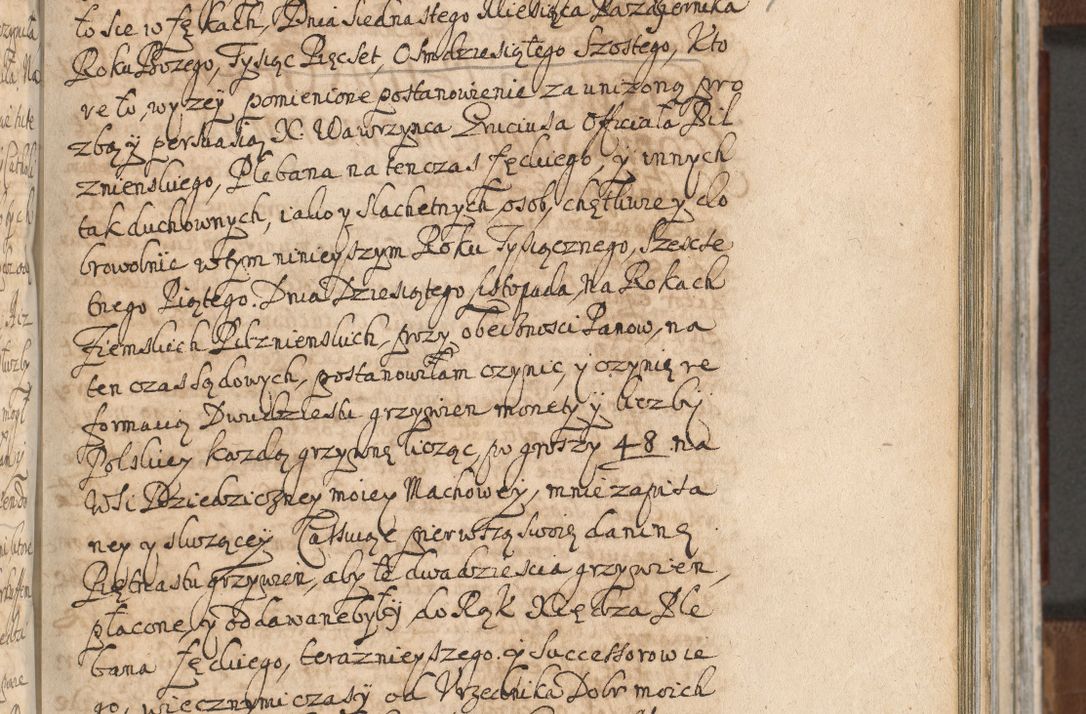 to sie w fękach, Dnia Siednastego Miesiąca Pazdziernika
Roku Bozego, Tysiąc Pięcset, Osmdziesiątego Szostego, Kto
re to, wyzey pomienione postanowienie za unizoną pro
zbą y perswasią X. Wawrzynca Druciusa Officiała Pil
znienskiego, Plebana na ten czas fęckiego, y innych
tak duchownych, iako y slachetnych osob, chętliwie y do
browolnie w tym ninieyszym Roku Tysiącznego, Szescse
tnego Piątego. Dnia Dziesiątego Listopada, Na Rokach
Ziemskich Pilznienskich, przy obecbnosci Panow, na
ten czas Sądowych, postanowiłam czynic, y czynię re
formacią Dwudziestu grzywien monety y liczby
Polskiey kazdą grzywnę licząc, po groszy 48 na
Wsi Dziedziczney moiey Machowey, mnie zapisa
ney y sluzącey Całkuiąc pierwszą swoię daninę
Piętnastu grzywien, aby te dwadziescia grzywien,
płacone, y oddawane były do Rąk Xiędza Ple
bana fęckiego, terazniejszego. y Successorow ie
go, wiecznymi czasy od Vrzednika Dobr moich